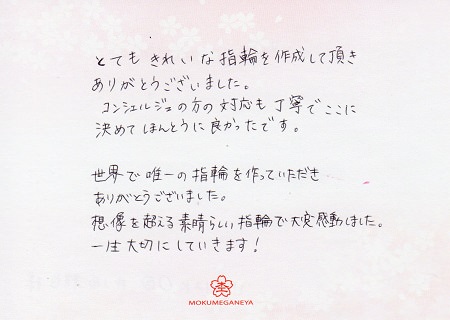 とてもきれいな指輪を作成して頂き
ありがとうございました。
コンシェルジュの方の対応も丁寧でここに
決めてほんとうに良かったです。
世界で唯一の指輪を作っていただき
ありがとうございました。
想像を超える素晴らしい指輪で大変感動しました。
一生大切にしていきます!
MOKUMEGANEYA